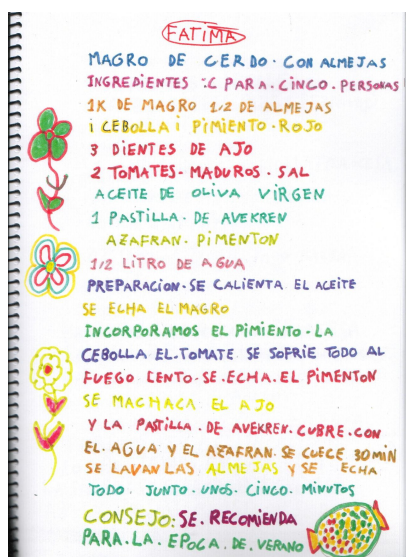 FATIMA
MAGRO DE CERDO. CON ALMEJAS
INGREDIENTES :C PARA. CINCO. PERSONAS
1K DE MAGRO 1/2 DE ALMEJAS
1 CEBOLLA 1 PIMIENTO. ROJO
3 DIENTES DE AJO
2 TOMATES. MADUROS. SAL
ACEITE DE OLIVA VIRGEN
1 PASTILLA. DE AVEKREN
AZAFRAN. PIMENTON
1/2 LITRO DE AGUA
PREPARACION. SE CALIENTA EL ACEITE
SE ECHA EL MAGRO
INCORPORAMOS EL PIMIENTO. LA
CEBOLLA EL. TOMATE SE SOFRIE TODO AL
FUEGO LENTO. SE. ECHA. EL PIMENTON
SE MACHACA EL AJO
Y LA PASTILLA. DE AVEKREN. CUBRE. CON
EL. AGUA Y EL AZAFRAN. SE CUECE 30 MIN
SE LAVAN LAS ALMEJAS Y SE ECHA
TODO. JUNTO. UNOS. CINCO. MINUTOS
CONSEJO: SE. RECOMIENDA
PARA. LA. EPOCA. DE. VERANO